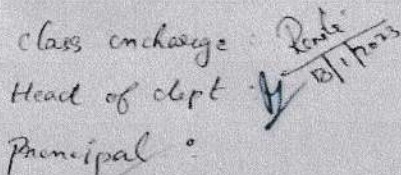 class incharge :
13/1/2023
Head of dept :
Principal :